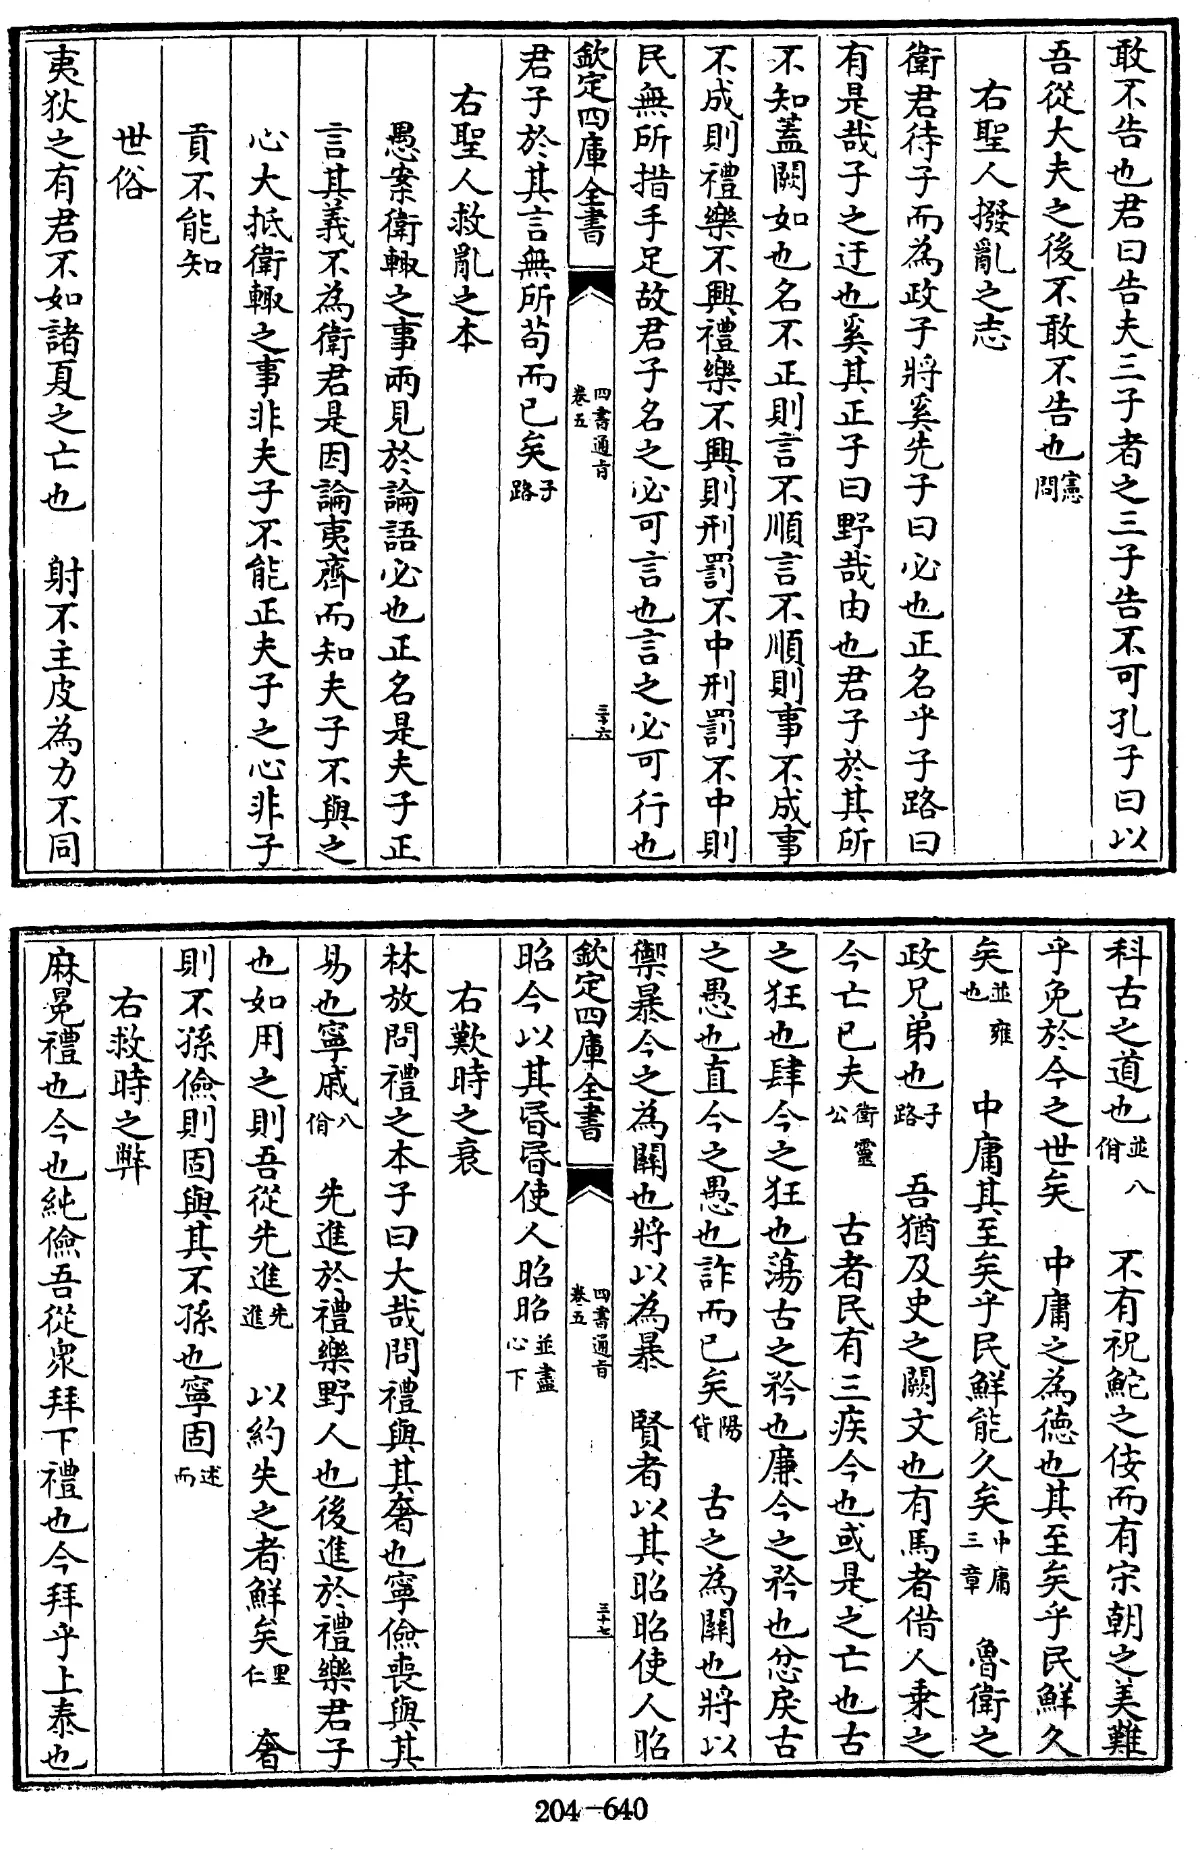 敢不告也君曰告夫三子者之三子告不可孔子曰以
吾從大夫之後不敢不告也憲問
右聖人撥亂之志
衛君待子而為政子將奚先子曰必也正名乎子路曰
有是哉子之迂也奚其正子曰野哉由也君子於其所
不知蓋闕如也名不正則言不順言不順則事不成事
不成則禮樂不興禮樂不興則刑罰不中刑罰不中則
民無所措手足故君子名之必可言也言之必可行也
欽定四庫全書 四書通旨卷五 三十六
君子於其言無所苟而已矣子路
右聖人救亂之本
愚案衛輙之事兩見於論語必也正名是夫子正
言其義不為衛君是因論夷齊而知夫子不與之
心大抵衛輙之事非夫子不能正夫子之心非子
貢不能知
世俗
夷狄之有君不如諸夏之亡也 射不主皮為力不同
科古之道也並八佾 不有祝鮀之佞而有宋朝之美難
乎免於今之世矣 中庸之為德也其至矣乎民鮮久
矣並雍也 中庸其至矣乎民鮮能久矣中庸三章 魯衛之
政兄弟也子路 吾猶及史之闕文也有馬者借人乗之
今亡已夫衛靈公 古者民有三疾今也或是之亡也古
之狂也肆今之狂也蕩古之矜也廉今之矜也忿戾古
之愚也直今之愚也詐而已矣陽貨 古之為關也將以
禦暴今之為關也將以為暴 賢者以其昭昭使人昭
欽定四庫全書 四書通旨卷五 三十七
昭今以其昏昏使人昭昭並盡心下
右歎時之衰
林放問禮之本子曰大哉問禮與其奢也寧儉喪與其
易也寧戚八佾 先進於禮樂野人也後進於禮樂君子
也如用之則吾從先進先進 以約失之者鮮矣里仁 奢
則不孫儉則固與其不孫也寧固述而
右救時之弊
麻冕禮也今也純儉吾從衆拜下禮也今拜乎上泰也
204-640